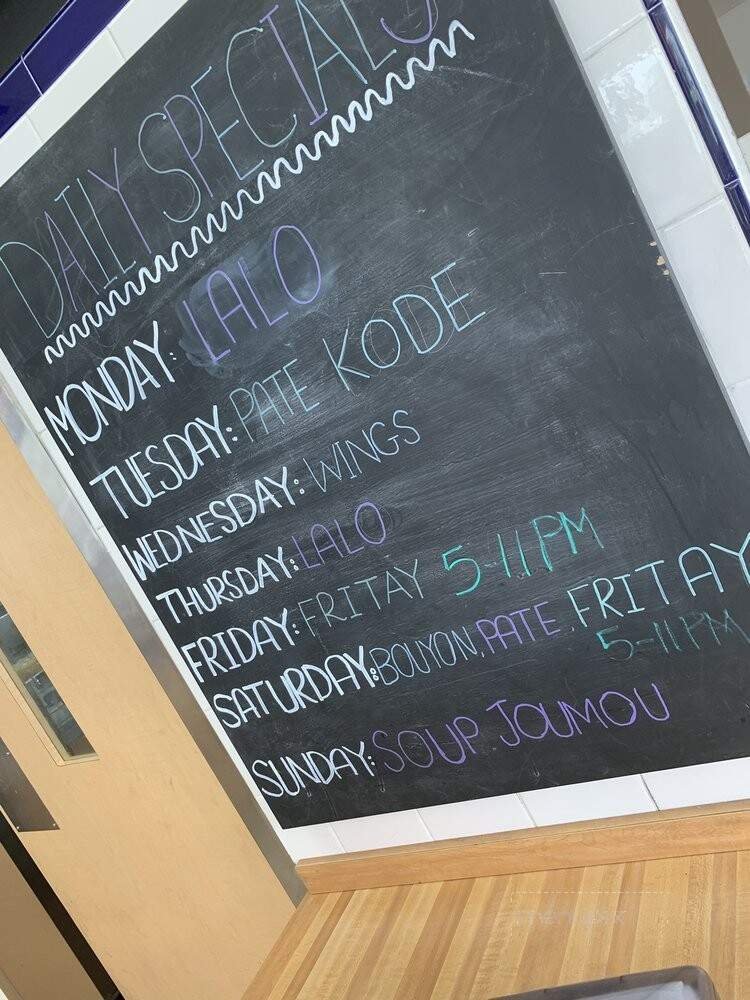 DAILY SPECIALS
MONDAY: LALO
TUESDAY: PATE KODE
WEDNESDAY: WINGS
THURSDAY: LALO
FRIDAY: FRITAY 5-11PM
SATURDAY: BOUYON, PATE, FRITAY
5-11PM
SUNDAY: SOUP JOUMOU